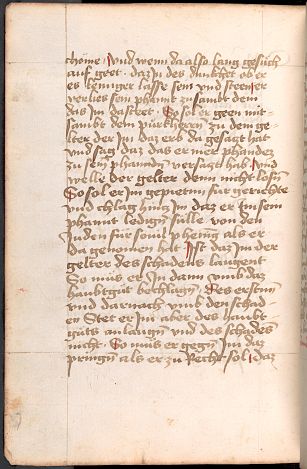 chome · Und wenn da also lang gesuch
auf geet · daz in des dunkhet ob er
es lenniger lasse sein und
verlies sein phannt zusambt dem
das Im da steet · So sol er geen mit
sambt dem purkhern zu dem ge
lter der Im daz erb da gesatzt hat
und sag daz das er nicht
zu sein phannden versatzt hab · Und
welle der gelter denn nicht losen
So sol er Im gepieten für gerichte
und chlag hintz Im daz er In sein
phannt ledigen sulle von den
Juden für souil phenig als er
da genomen hat · Ist daz Im der
gelter des schadens laugent
So mus er In dann umb daz
haubtgut bechlagen · Des ersten
und darnach umb den schad
en Stet er Im aber des haubt
guts an laugen und des schades
nicht · So mus er gegen Im daz
pringen als er zu Recht sol · daz